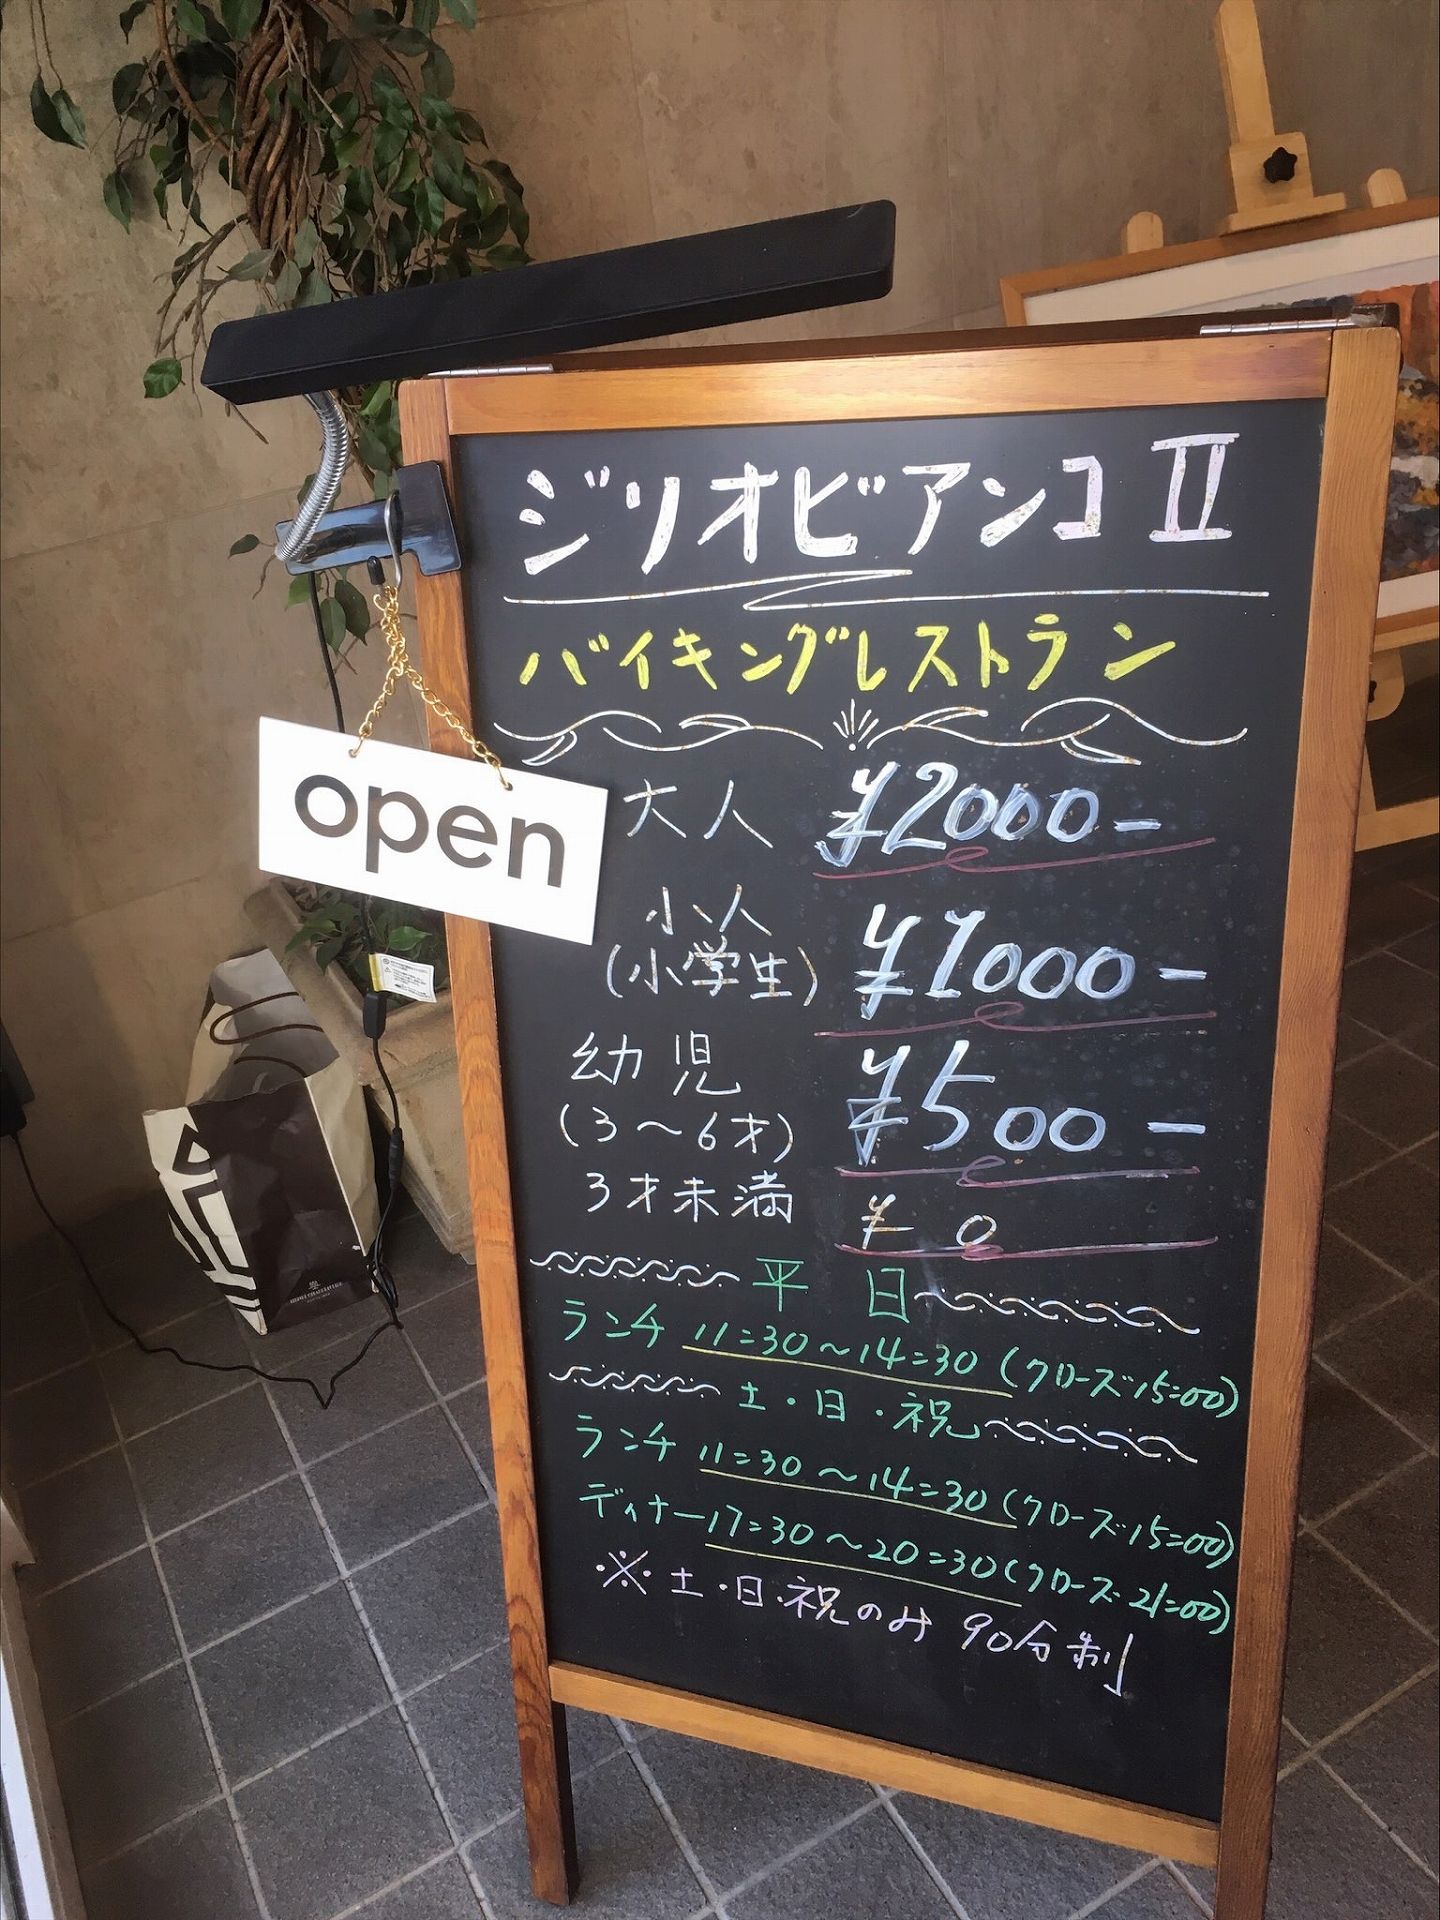 ジリオビアンコⅡ
バイキングレストラン
open
大人 ¥2000-
小人
(小学生) ¥1000-
幼児
(3～6才) ¥500-
3才未満 ¥0
平日
ランチ 11=30～14=30 (クローズ15=00)
土・日・祝
ランチ 11=30～14=30 (クローズ15=00)
ディナー17=30～20=30(クローズ21=00)
※土・日・祝のみ 90分制